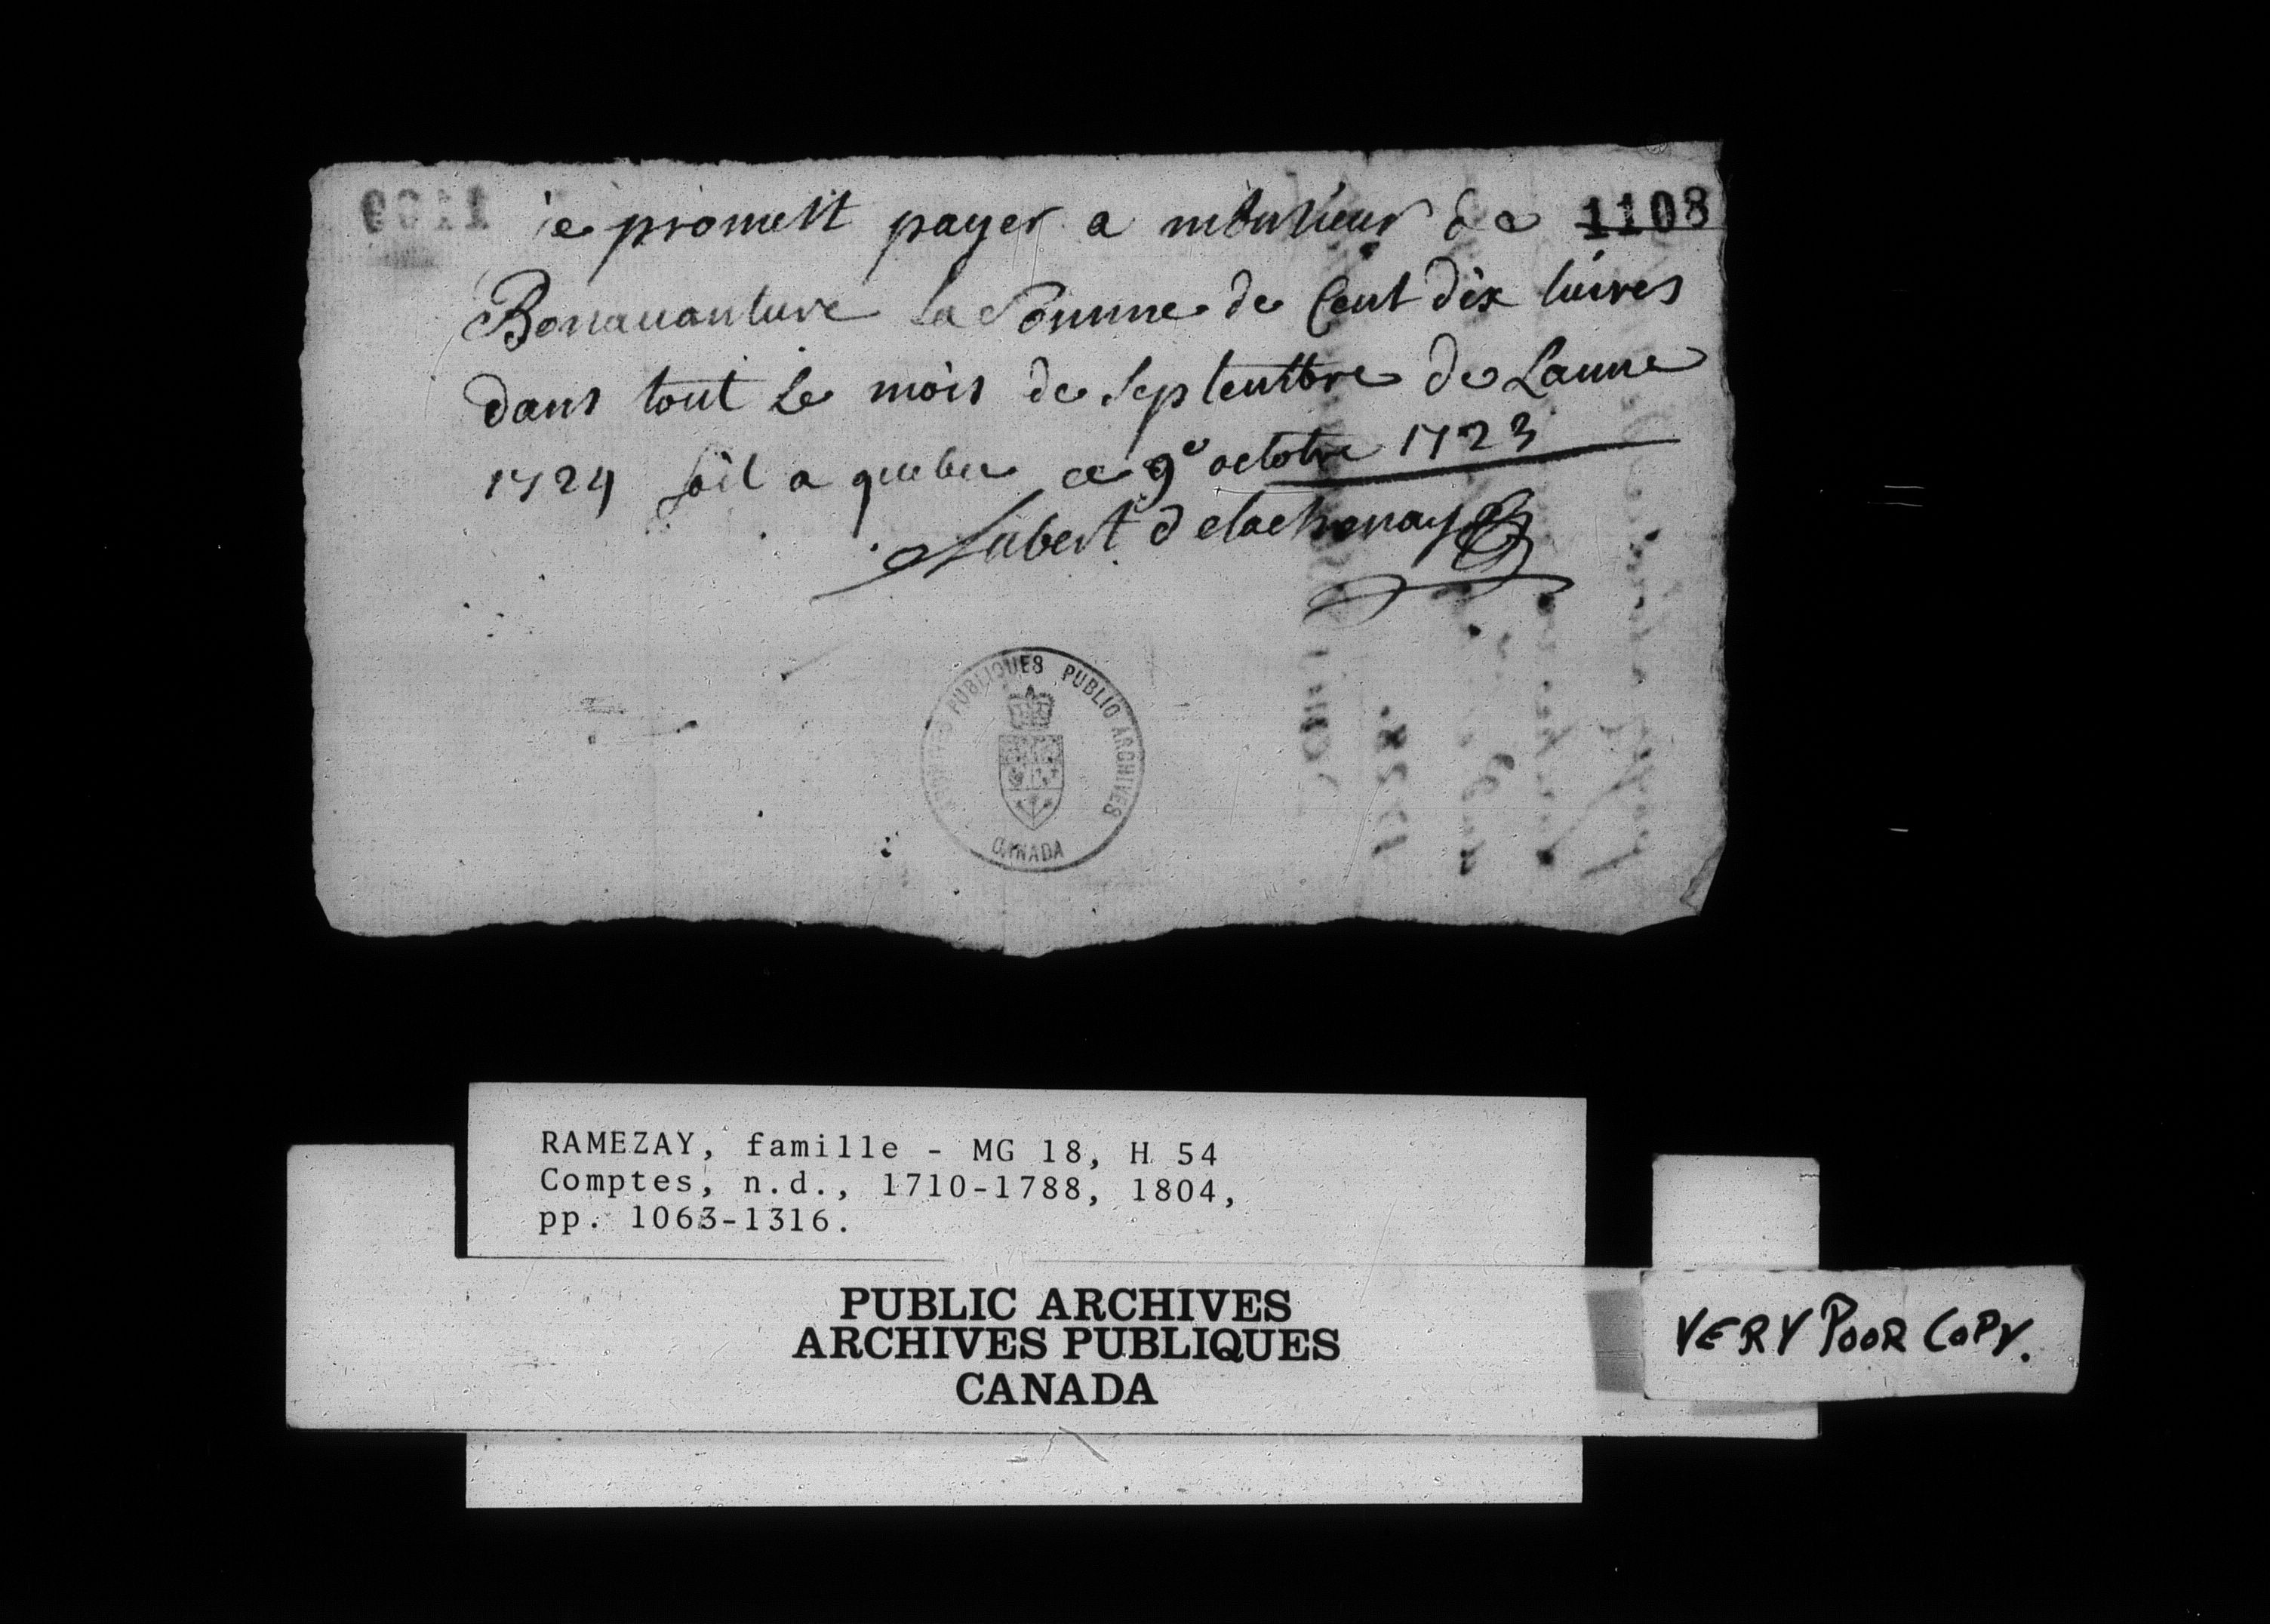 1108
je promett payer a monsieur de
Bonauanture La Somme de Cent dix liures
dans tout Le mois de Septembre de Lanne
1724 fait a quebec ce 9e octobre 1723
Aubert delachenaye
ARCHIVES PUBLIQUES PUBLIC ARCHIVES
CANADA
RAMEZAY, famille - MG 18, H 54
Comptes, n.d., 1710-1788, 1804,
pp. 1063-1316.
PUBLIC ARCHIVES
ARCHIVES PUBLIQUES
CANADA
VERY POOR COPY.